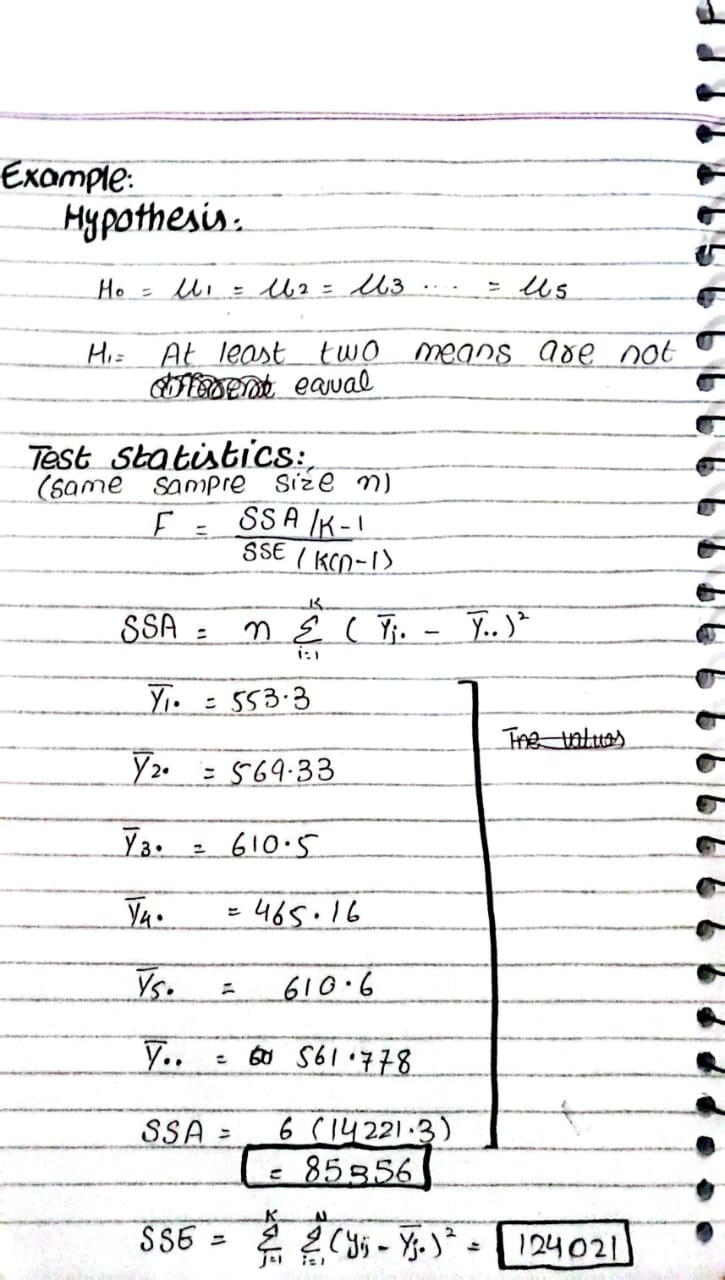 Example:
Hypothesis:
H₀ = μ₁ = μ₂ = μ3 .... = μ5
H₁= At least two means are not
different equal
Test Statistics:
(same sampre size n)
F = SSA/K-1
SSE / K(n-1)
SSA = n Σ ( Ȳj. - Ȳ..)²
K
i=1
Ȳ1. = 553.3
The values
Ȳ2. = 569.33
Ȳ3. = 610.5
Ȳ4. = 465.16
Ȳ5. = 610.6
Ȳ.. = 561.778
SSA = 6 (14221.3)
= 85356
SSE = Σ Σ (yij - Ȳj.)² = 124021
K N
j=1 i=1